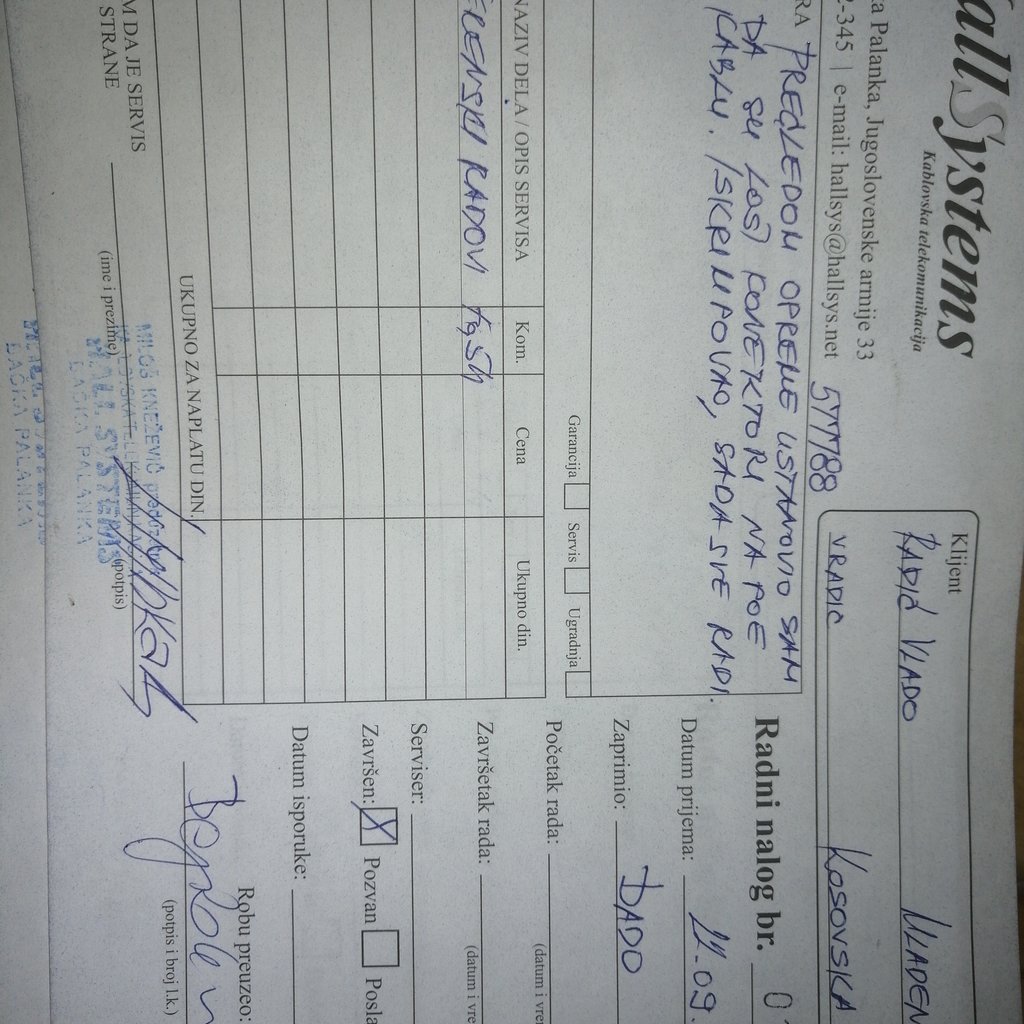 HallSystems
Kablovska telekomunikacija
ka Palanka, Jugoslovenske armije 33
2-345 | e-mail: hallsys@hallsys.net
Klijent
RADIĆ VLADO
MLADEN
VRADIC
KOSOVSKA
PREGLEDOM OPREME USTANOVIO SAM
DA SU LOŠI KONEKTORI NA POE
KABLU. ISKRIMPOVAO, SADA SVE RADI.
Garancija Servis Ugradnja
NAZIV DELA / OPIS SERVISA Kom. Cena Ukupno din.
TERENSKI RADOVI
UKUPNO ZA NAPLATU DIN.
Radni nalog br. 0
Datum prijema:
Zaprimio: DADO
Početak rada:
(datum i vre
Završetak rada:
(datum i vre
Serviser:
Završen: X Pozvan Posla
Datum isporuke:
Robu preuzeo:
(potpis i broj l.k.)
M DA JE SERVIS
STRANE
(ime i prezime)
(potpis)
MILOŠ KNEŽEVIĆ
HALL SYSTEMS
BAČKA PALANKA
BAČKA PALANKA